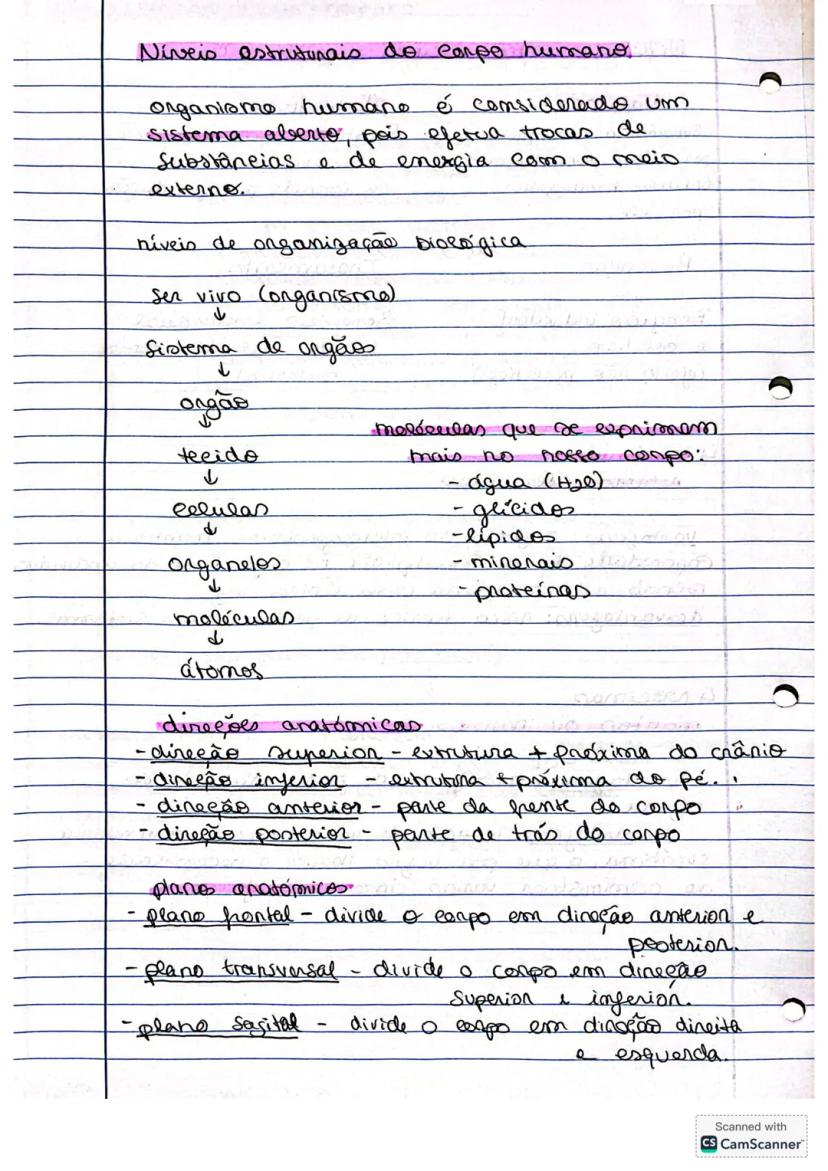 Níveis estruturais do corpo humano.
organismo humano é considerado um
sistema aberto, pois efetua trocas de
substâncias e de energia com o meio
externo.
níveis de organização biológica
ser vivo (organismo)
↓
Sistema de orgãos
↓
orgão
↓
tecido
↓
celulas
↓
organelos
↓
moléculas
↓
átomos
moléculas que se exprimem
mais no nosso corpo:
- água (H2O)
- glícidos
- lípidos
- minerais
- proteínas
direções anatómicas
- direção superior - estrutura + próxima do crânio
- direção inferior - estrutura + próxima do pé.
- direção anterior - parte da frente do corpo
- direção posterior - parte de trás do corpo
planos anatómicos
- plano frontal - divide o corpo em direção anterior e
posterior.
- plano transversal - divide o corpo em direção
superior e inferior.
- plano sagital - divide o corpo em direção direita
e esquerda.
Scanned with
CS CamScanner